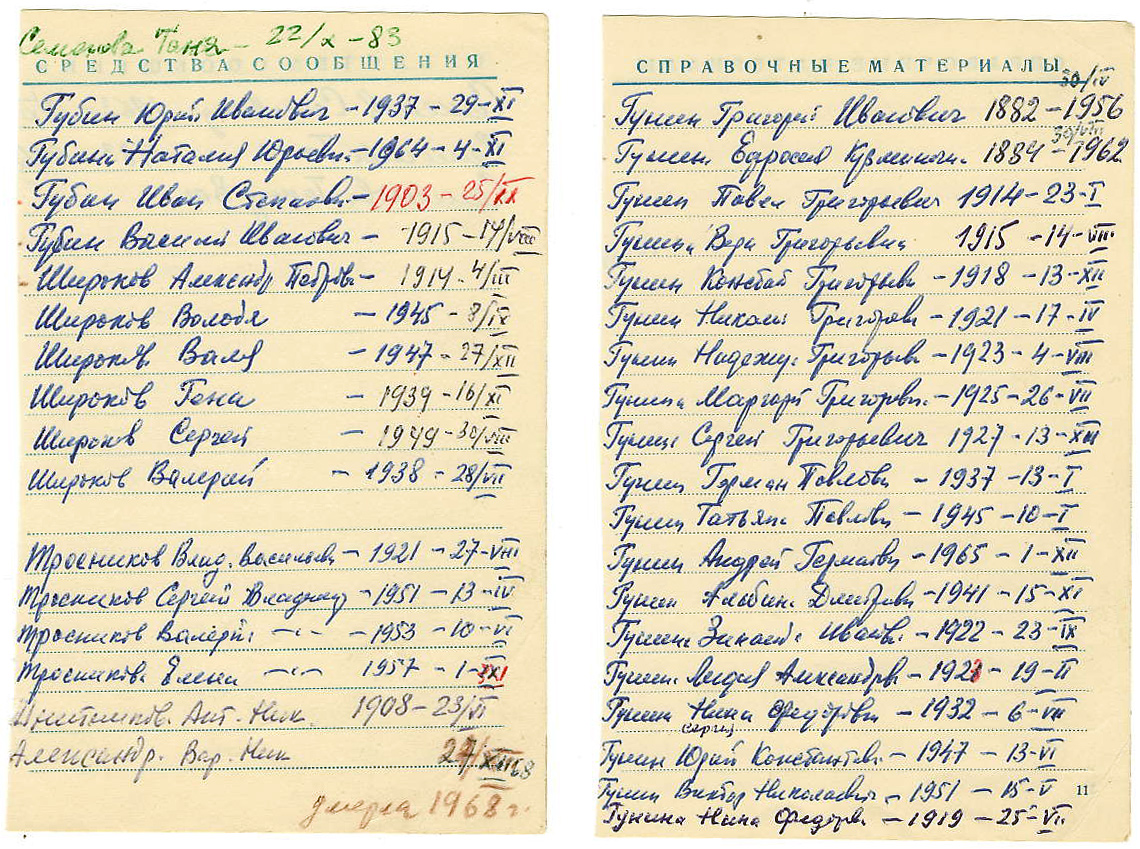 Семенова Таня - 22/X - 83
СРЕДСТВА СООБЩЕНИЯ
Губин Юрий Иванович - 1937 - 29-XI
Губина Наталия Юрьевн. - 1964 - 4-XI
Губин Иван Степанови - 1903 - 25/IX
Губин Василий Иванович - 1915 - 14/VIII
Широков Александр Петрови - 1914 - 4/III
Широков Володя - 1945 - 8/IX
Широков Валя - 1947 - 27/XII
Широков Гена - 1939 - 16/XI
Широков Сергей - 1949 - 30/VIII
Широков Валерий - 1938 - 28/VII
Тросников Влад. Васильеви - 1921 - 27-VIII
Тросников Сергей Владимир - 1951 - 13-IV
Тросников Валерий - 〃 - 1953 - 10-VI
Тросникова Елена - 〃 - 1957 - 1-XI
Ант. Ник. 1908 - 23/VI
Александр. Вар. Ник 68
умерла 1968 г.
СПРАВОЧНЫЕ МАТЕРИАЛЫ
30/IV
Гунин Григорий Иванович 1882 - 1956
30/VIII
Гунина Ефросиа Кузминичн. 1884 - 1962
Гунин Павел Григорьевич 1914 - 23-I
Гунина Вера Григорьевна 1915 - 14-VII
Гунин Григорьеви - 1918 - 13-XII
Гунин Николай Григореви - 1921 - 17-IV
Гунина Надежда Григорьев - 1923 - 4-VIII
Гунина Григоревн. - 1925 - 26-VII
Гунин Сергей Григорьевич 1927 - 13-XII
Гунин Герман Павлови - 1937 - 13-I
Гунин Татьяна Павлови - 1945 - 10-I
Гунин Андрей Германови - 1965 - 1-XII
Гунин Альбина Дмитревн - 1941 - 15-XI
Гунина Зинаида Иванов. - 1922 - 23-IX
Гунина Лидия Александров. - 1923 - 19-II
Гунин Нина Федоровн - 1932 - 6-VII
Сергей
Гунин Юрий Константинов. - 1947 - 13-VI
Гунин Виктор Николаевич - 1951 - 15-V 11
Гунина Нина Федоров. - 1919 - 25-VII